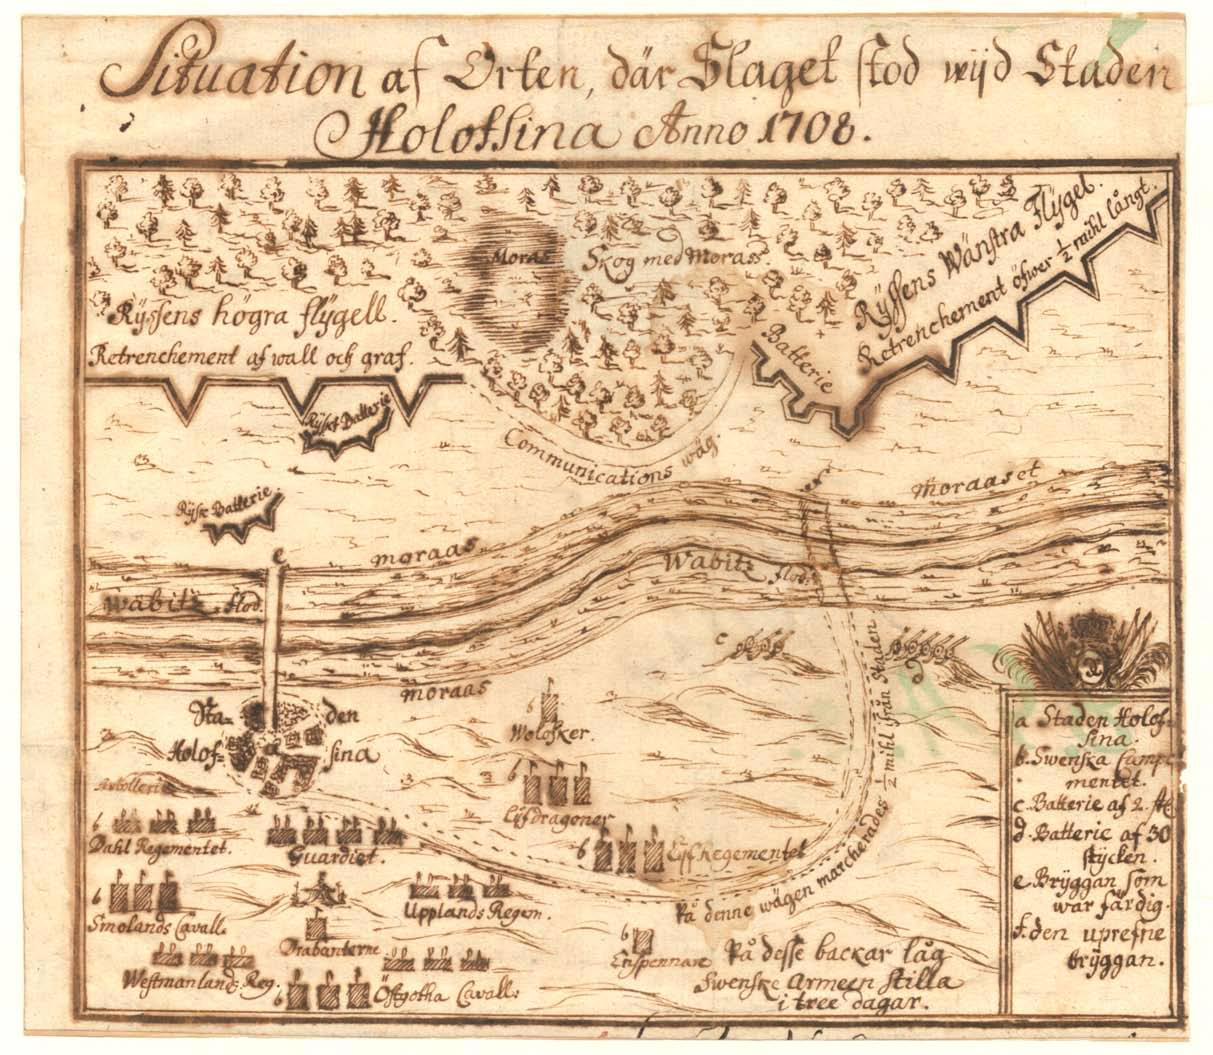 Situation af Orten, där Slaget stod wijd Staden
Holofsina Anno 1708.
Moras
Skog med Moras
Ryssens högra flygell.
Retrenchement af wall och graf.
Ryssens Wänstra Flygel.
Retrenchement öfwer ½ mihl långt.
Batterie
Rysk Batterie
Communications wäg.
Ryske Batterie
e
f
moraas
moraaset
Wabitz flod.
Wabitz flod.
moraas
c
d
Sta= den
Holof= sina
a
Wolosker.
b
Lijfdragoner
b
Lijf Regementet
b
Dahl Regementet.
Guardiet.
b
Smolands Cavall.
Upplands Regem.
Drabanterne
Westmanland: Reg.
b
Östgotha Cavall.
b
På denne wägen marcherades ½ mihl från Staden
På desse backar låg
Swenske Armeen stilla
i tree dagar.
a Staden Holof=
sina.
b. Swenska Campe
mentet.
c. Batterie af 2. st
d. Batterie af 30
stycken.
e. Bryggan som
war färdig.
f. den uprefne
bryggan.